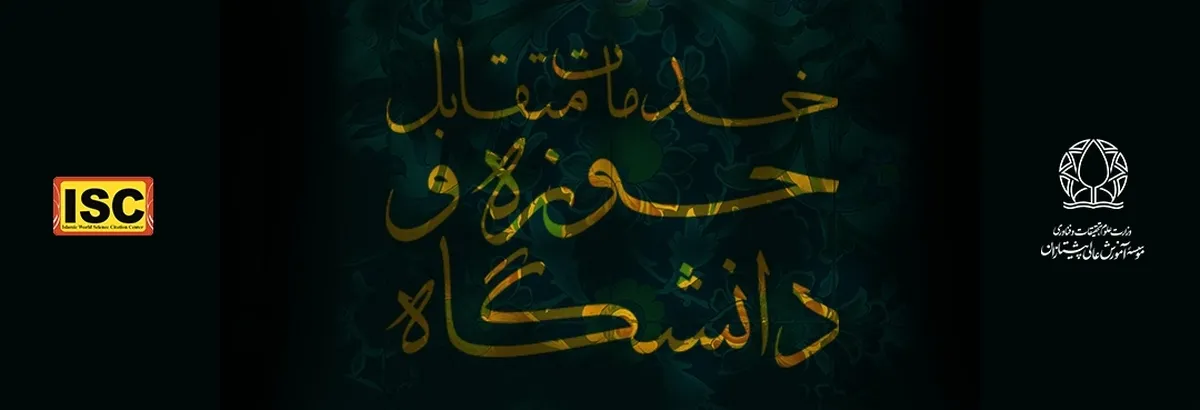 خدمات متقابل
حوزه و
دانشگاه
ISC
Islamic World Science Citation Center
وزارت علوم تحقیقات و فناوری
موسسه آموزش عالی پیشتازان